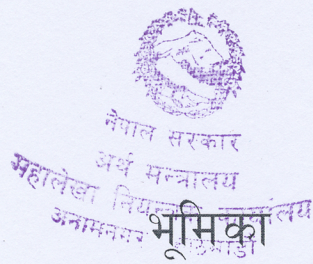 नेपाल सरकार
अर्थ मन्त्रालय
महालेखा नियन्त्रक
अनामनगर
भूमिका